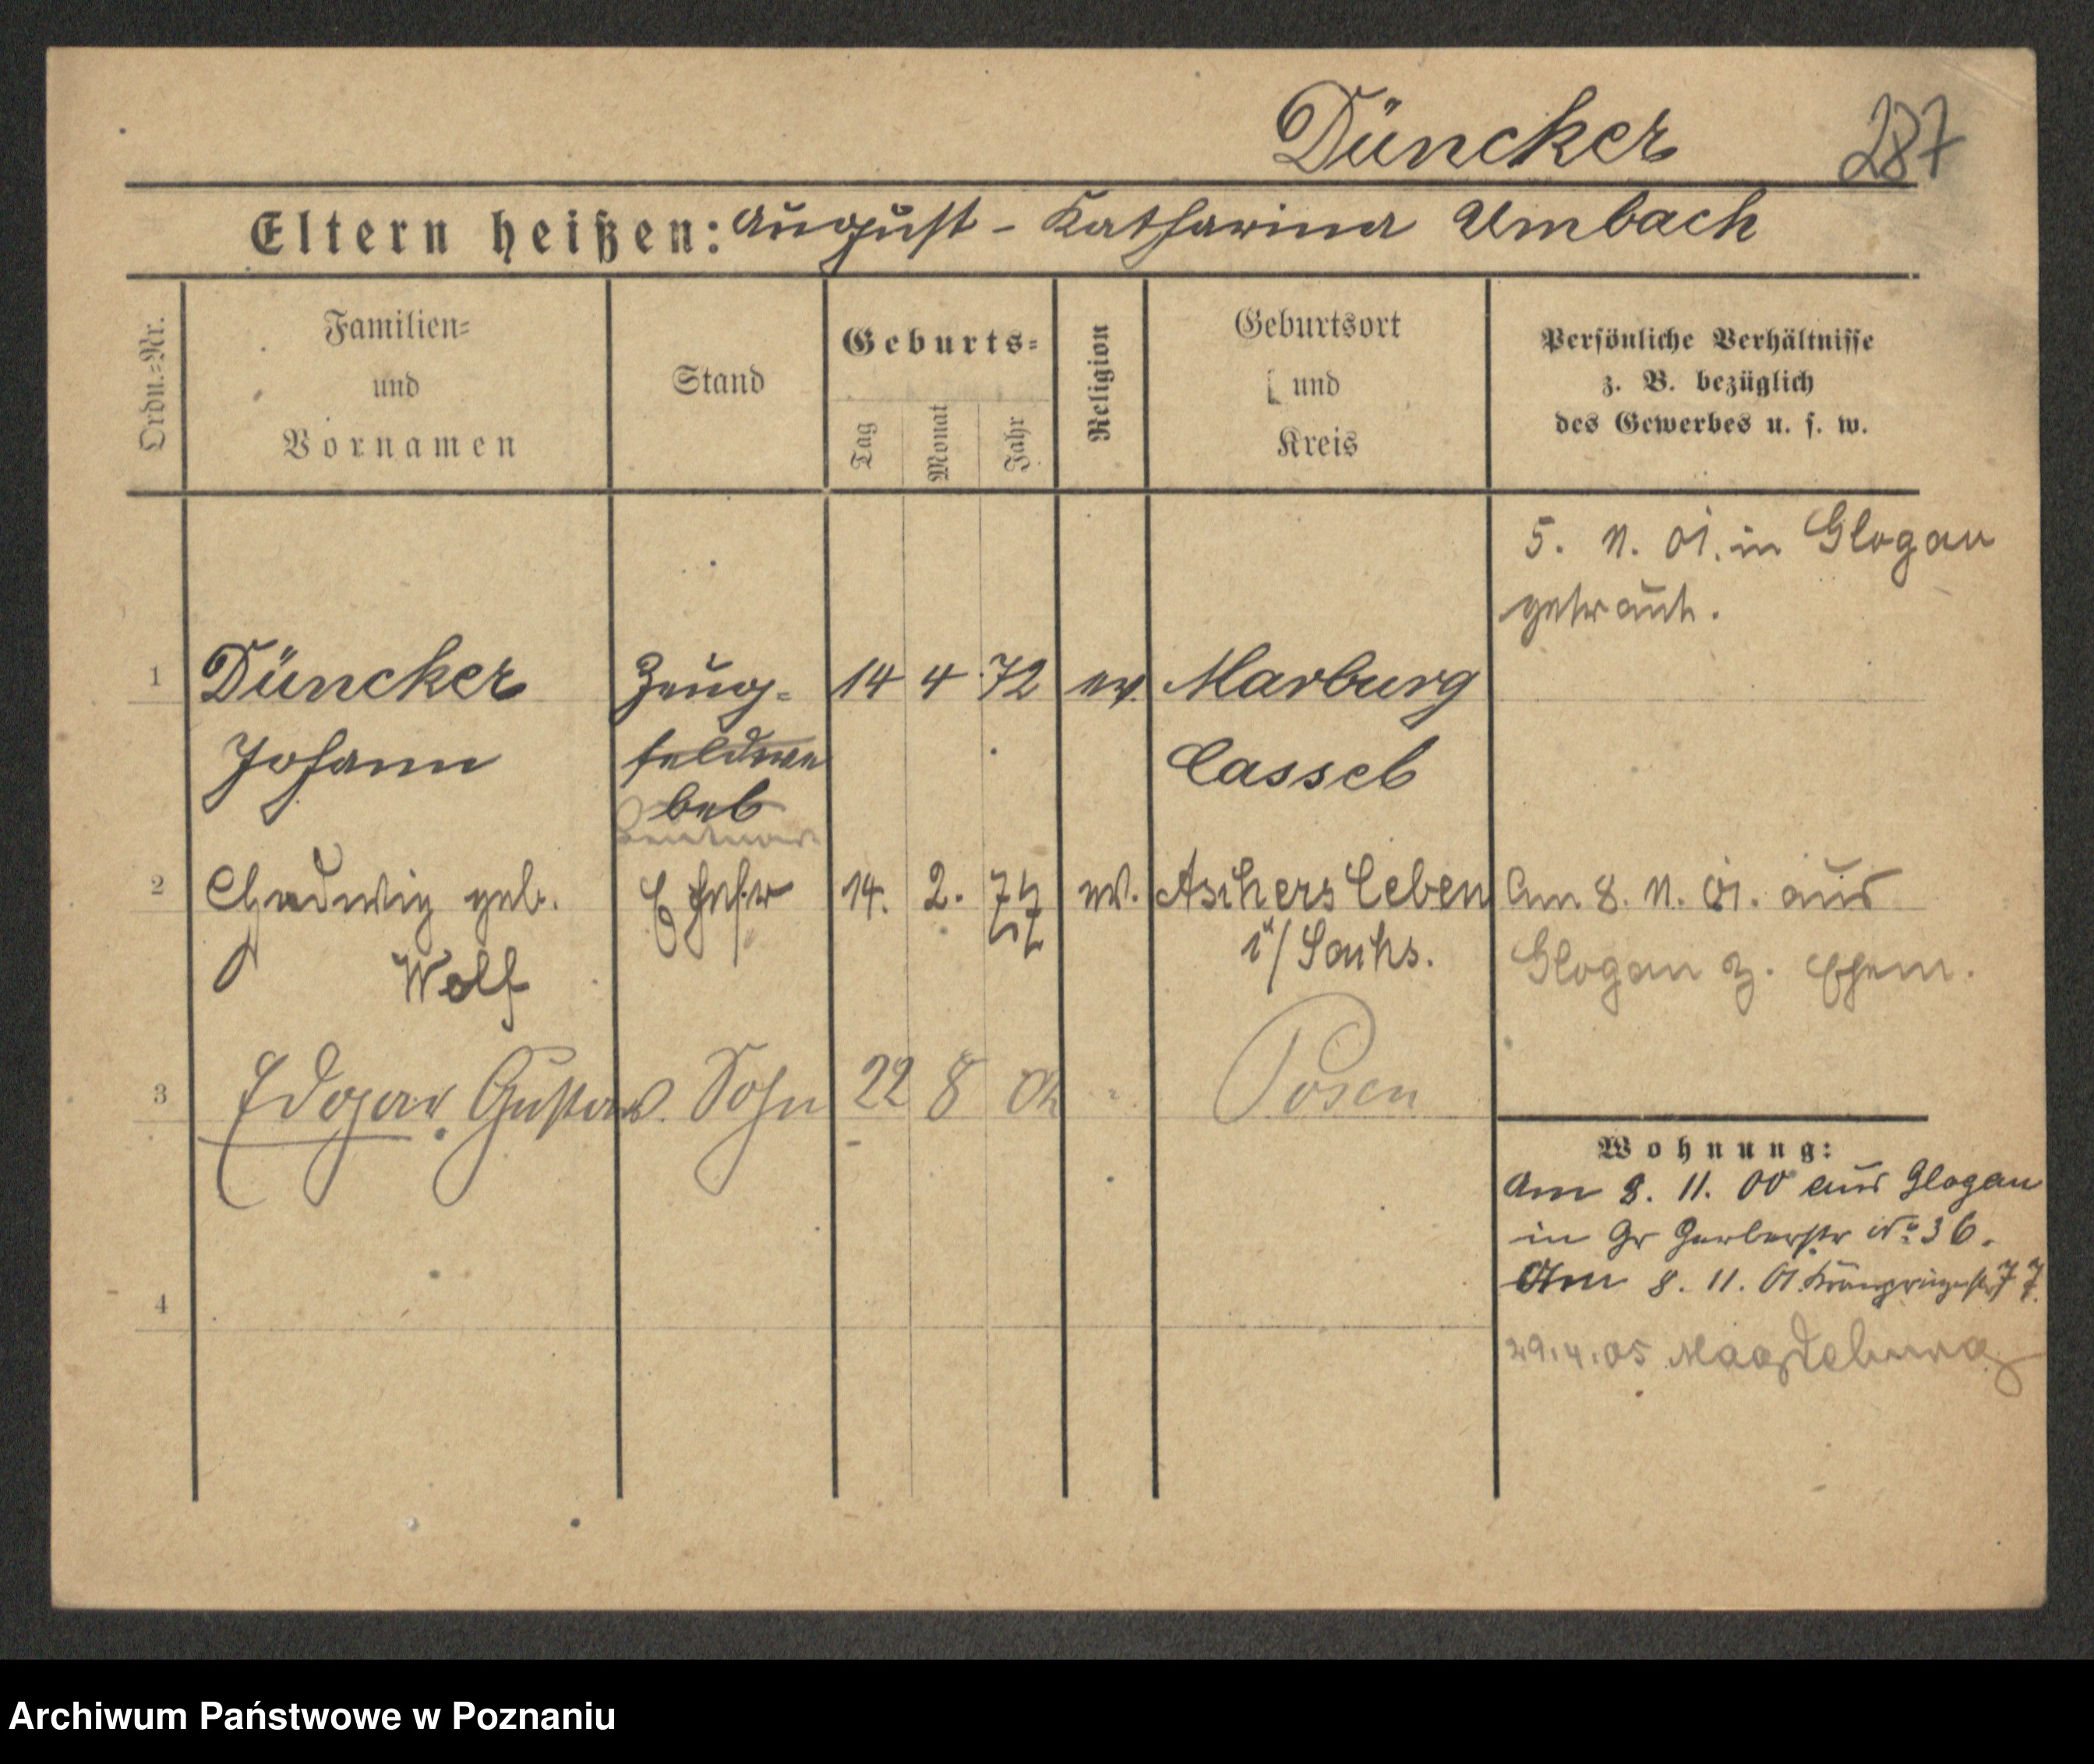 Düncker 287
Eltern heißen: August - Katharina Umbach
Ordn.=Nr.
Familien=
und
Vornamen
Stand
Geburts=
Tag
Monat
Jahr
Religion
Geburtsort
und
Kreis
Persönliche Verhältnisse
z. B. bezüglich
des Gewerbes u. s. w.
5. 11. 01. in Glogau
getraut.
1 Düncker Zeug- 14 4 72 ev. Marburg
Johann feldwe Cassel
bel
2 Hedwig geb. Ehefr 14. 2. 77 ev. Aschersleben Am 8. 11. 01. aus
77
Wolf i/Sachs. Glogau z. Ehem.
3 Edgar Gustav Sohn 22 8 02 Posen
Wohnung:
Am 8. 11. 00 aus Glogau
in Gr Gerberstr No 36.
Am 8. 11. 01. Kronprinzenstr 77
4
29.4.05 Magdeburg
Archiwum Państwowe w Poznaniu